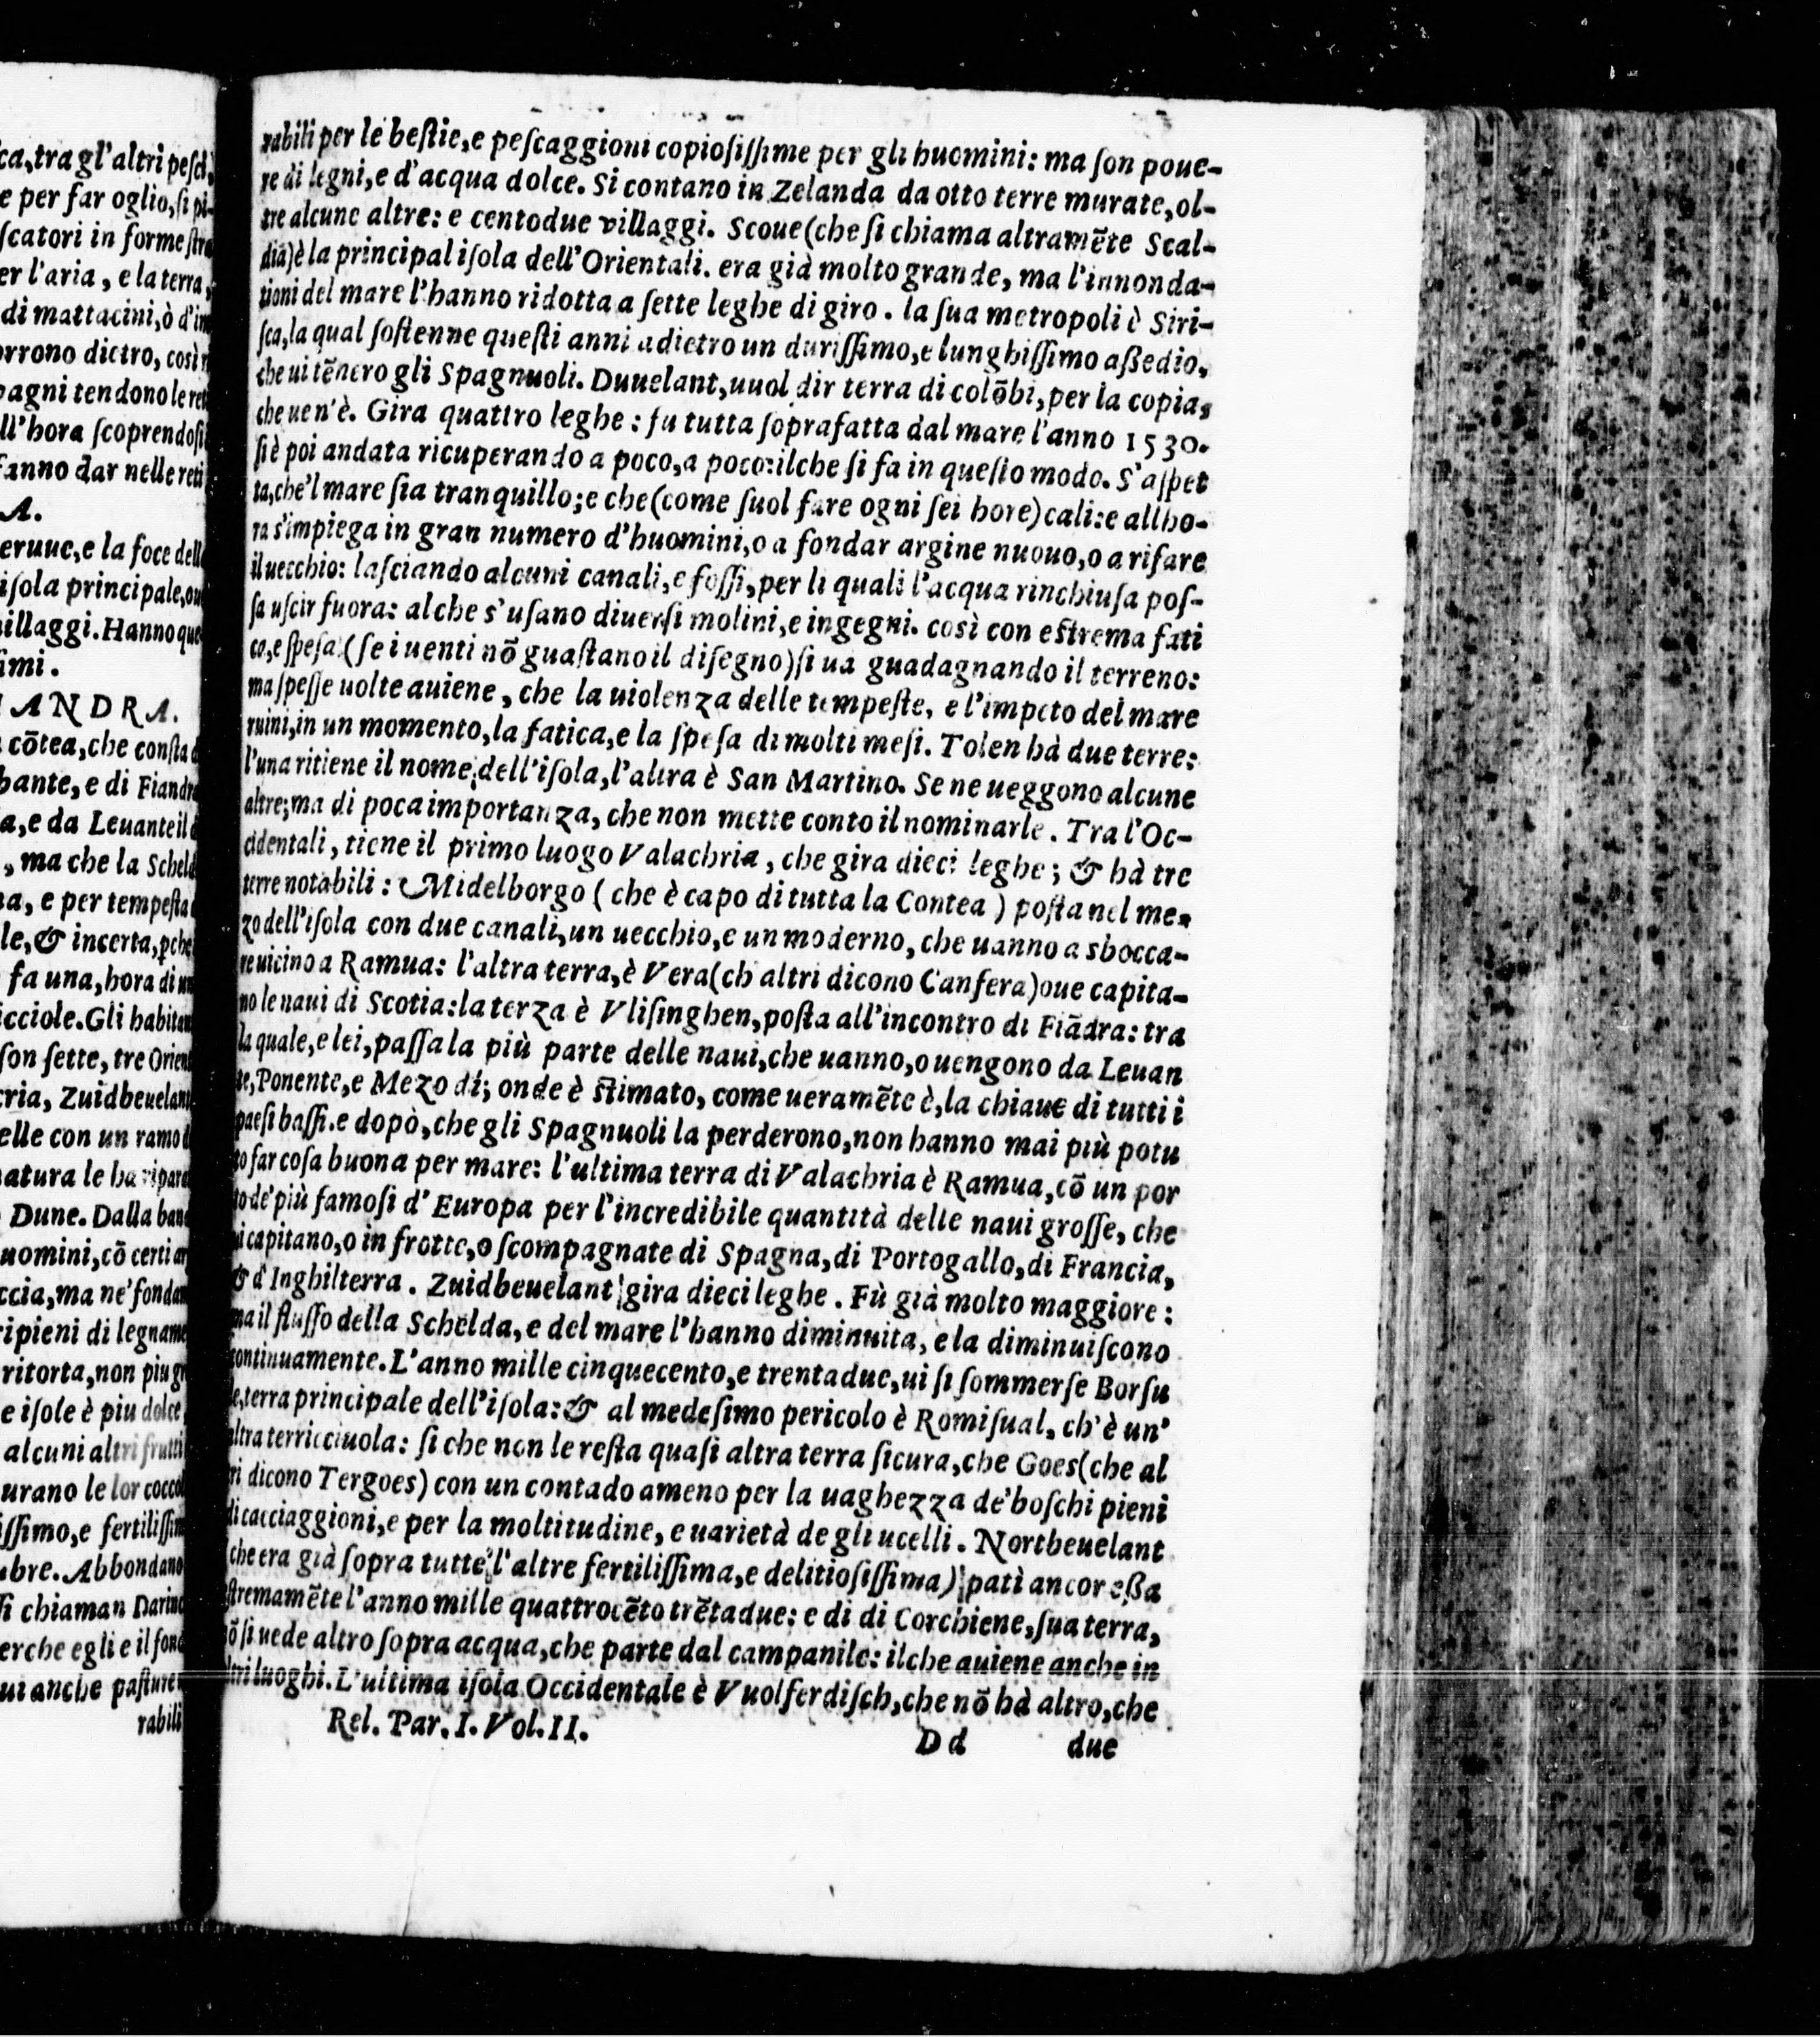 ca,tra gl'altri pesci,
e per far oglio,si pi-
scatori in forme stra
er l'aria, e la terra,
di mattacini,ò d'im
orrono dietro, così
pagni tendono le reti
ll'hora scoprendosi
fanno dar nelle reti
A.
eruue,e la foce dell
isola principale,ou
uillaggi.Hanno que
simi.
ANDRA.
cōtea,che consta d
bante, e di Fiandra
a,e da Leuante il
, ma che la Scheld
na, e per tempesta
le,& incerta,pche
fa una,hora di
icciole.Gli habitan
son sette, tre Orien
cria, Zuidbeuelant
elle con un ramo d
natura le ha ripara
Dune. Dalla band
uomini,cō certi ar
ccia,ma ne'fondam
ripieni di legname
ritorta,non piu gr
e isole è piu dolce
alcuni altri frutti
urano le lor coccol
issimo,e fertilissim
bre. Abbondano
si chiaman Darinc
erche egli e il fond
ui anche pasture
rabili
rabili per le bestie,e pescaggioni copiosissime per gli huomini: ma son poue-
re di legni,e d'acqua dolce. Si contano in Zelanda da otto terre murate,ol-
tre alcune altre: e centodue villaggi. Scoue(che si chiama altramēte Scal-
dia)è la principal isola dell'Orientali. era già molto grande, ma l'innonda-
tioni del mare l'hanno ridotta a sette leghe di giro. la sua metropoli è Siri-
sca,la qual sostenne questi anni adietro un durissimo,e lunghissimo aßedio,
che ui tēnero gli Spagnuoli. Duuelant,uuol dir terra di colōbi,per la copia,
che uen'è. Gira quattro leghe: fu tutta soprafatta dal mare l'anno 1530.
si è poi andata ricuperando a poco,a poco:ilche si fa in questo modo. S'aspet
ta,che'l mare sia tranquillo;e che(come suol fare ogni sei hore)cali:e allho-
ra s'impiega in gran numero d'huomini,o a fondar argine nuouo,o a rifare
il uecchio: lasciando alcuni canali,e fossi,per li quali l'acqua rinchiusa pos-
sa uscir fuora: al che s'usano diuersi molini,e ingegni. così con estrema fati
ca,e spesa(se i uenti nō guastano il disegno)si ua guadagnando il terreno:
ma spesse uolte auiene, che la uiolenza delle tempeste, e l'impeto del mare
ruini,in un momento,la fatica,e la spesa di molti mesi. Tolen hà due terre:
l'una ritiene il nome dell'isola,l'altra è San Martino. Se ne ueggono alcune
altre;ma di poca importanza, che non mette conto il nominarle. Tra l'Oc-
cidentali, tiene il primo luogo Valachria, che gira dieci leghe; & hà tre
terre notabili: Midelborgo (che è capo di tutta la Contea) posta nel me-
zo dell'isola con due canali,un uecchio,e un moderno, che uanno a sbocca-
re uicino a Ramua: l'altra terra,è Vera(ch altri dicono Canfera)oue capita-
no le naui di Scotia:la terza è Vlisinghen,posta all'incontro di Fiādra: tra
la quale,e lei,passa la più parte delle naui,che uanno,o uengono da Leuan
te,Ponente,e Mezo dì; onde è stimato, come ueramēte è,la chiaue di tutti i
paesi bassi.e dopò,che gli Spagnuoli la perderono,non hanno mai più potu
to far cosa buona per mare: l'ultima terra di Valachria è Ramua,cō un por
to de'più famosi d'Europa per l'incredibile quantità delle naui grosse, che
ui capitano,o in frotte,o scompagnate di Spagna,di Portogallo,di Francia,
& d'Inghilterra. Zuidbeuelant gira dieci leghe. Fù già molto maggiore:
ma il flusso della Schelda,e del mare l'hanno diminuita, e la diminuiscono
continuamente.L'anno mille cinquecento,e trentadue,ui si sommerse Borsu
le,terra principale dell'isola:& al medesimo pericolo è Romisual, ch'è un'
altra terricciuola: si che non le resta quasi altra terra sicura,che Goes(che al
tri dicono Tergoes) con un contado ameno per la uaghezza de'boschi pieni
di cacciaggioni,e per la moltitudine, e uarietà de gli ucelli. Nortbeuelant
(che era già sopra tutte l'altre fertilissima,e delitiosissima) patì ancor eßa
estremamēte l'anno mille quattrocēto trētadue: e di di Corchiene,sua terra,
nō si uede altro sopra acqua,che parte dal campanile: ilche auiene anche in
altri luoghi.L'ultima isola Occidentale è Vuolferdisch,che nō hà altro,che
Rel. Par. I. Vol. II. Dd due